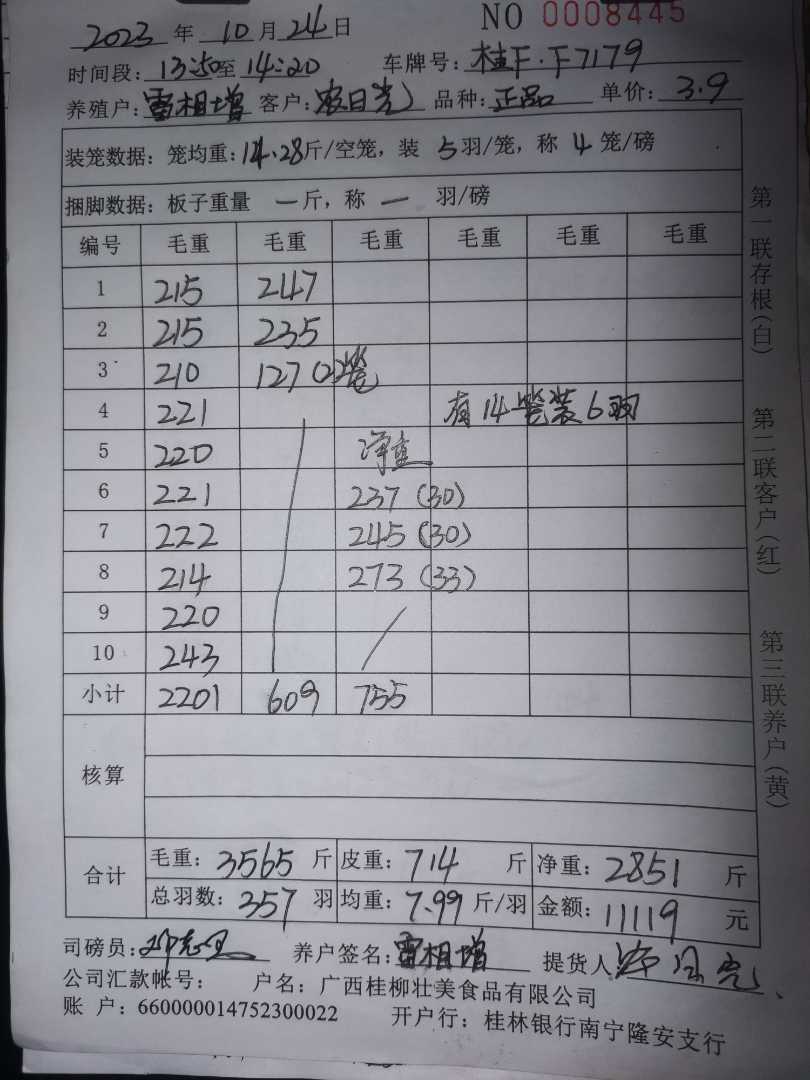 2023 年 10 月 24 日 NO 0008445
时间段: 13:50 至 14:20 车牌号: 桂F·F7179
养殖户: 雷相增 客户: 农日光 品种: 正品 单价: 3.9
装笼数据: 笼均重: 14.28 斤/空笼, 装 5 羽/笼, 称 4 笼/磅
捆脚数据: 板子重量 一 斤, 称 一 羽/磅
编号 毛重 毛重 毛重 毛重 毛重 毛重
1 215 247
2 215 235
3 210 127 (2笼
4 221 有14笼装6羽
5 220 净重
6 221 237 (30)
7 222 245 (30)
8 214 273 (33)
9 220
10 243
小计 2201 609 755
核算
合计 毛重: 3565 斤 皮重: 714 斤 净重: 2851 斤
总羽数: 357 羽 均重: 7.99 斤/羽 金额: 11119 元
司磅员: 养户签名: 雷相增 提货人
公司汇款帐号: 户名: 广西桂柳壮美食品有限公司
账 户: 660000014752300022 开户行: 桂林银行南宁隆安支行
第一联存根(白)
第二联客户(红)
第三联养户(黄)